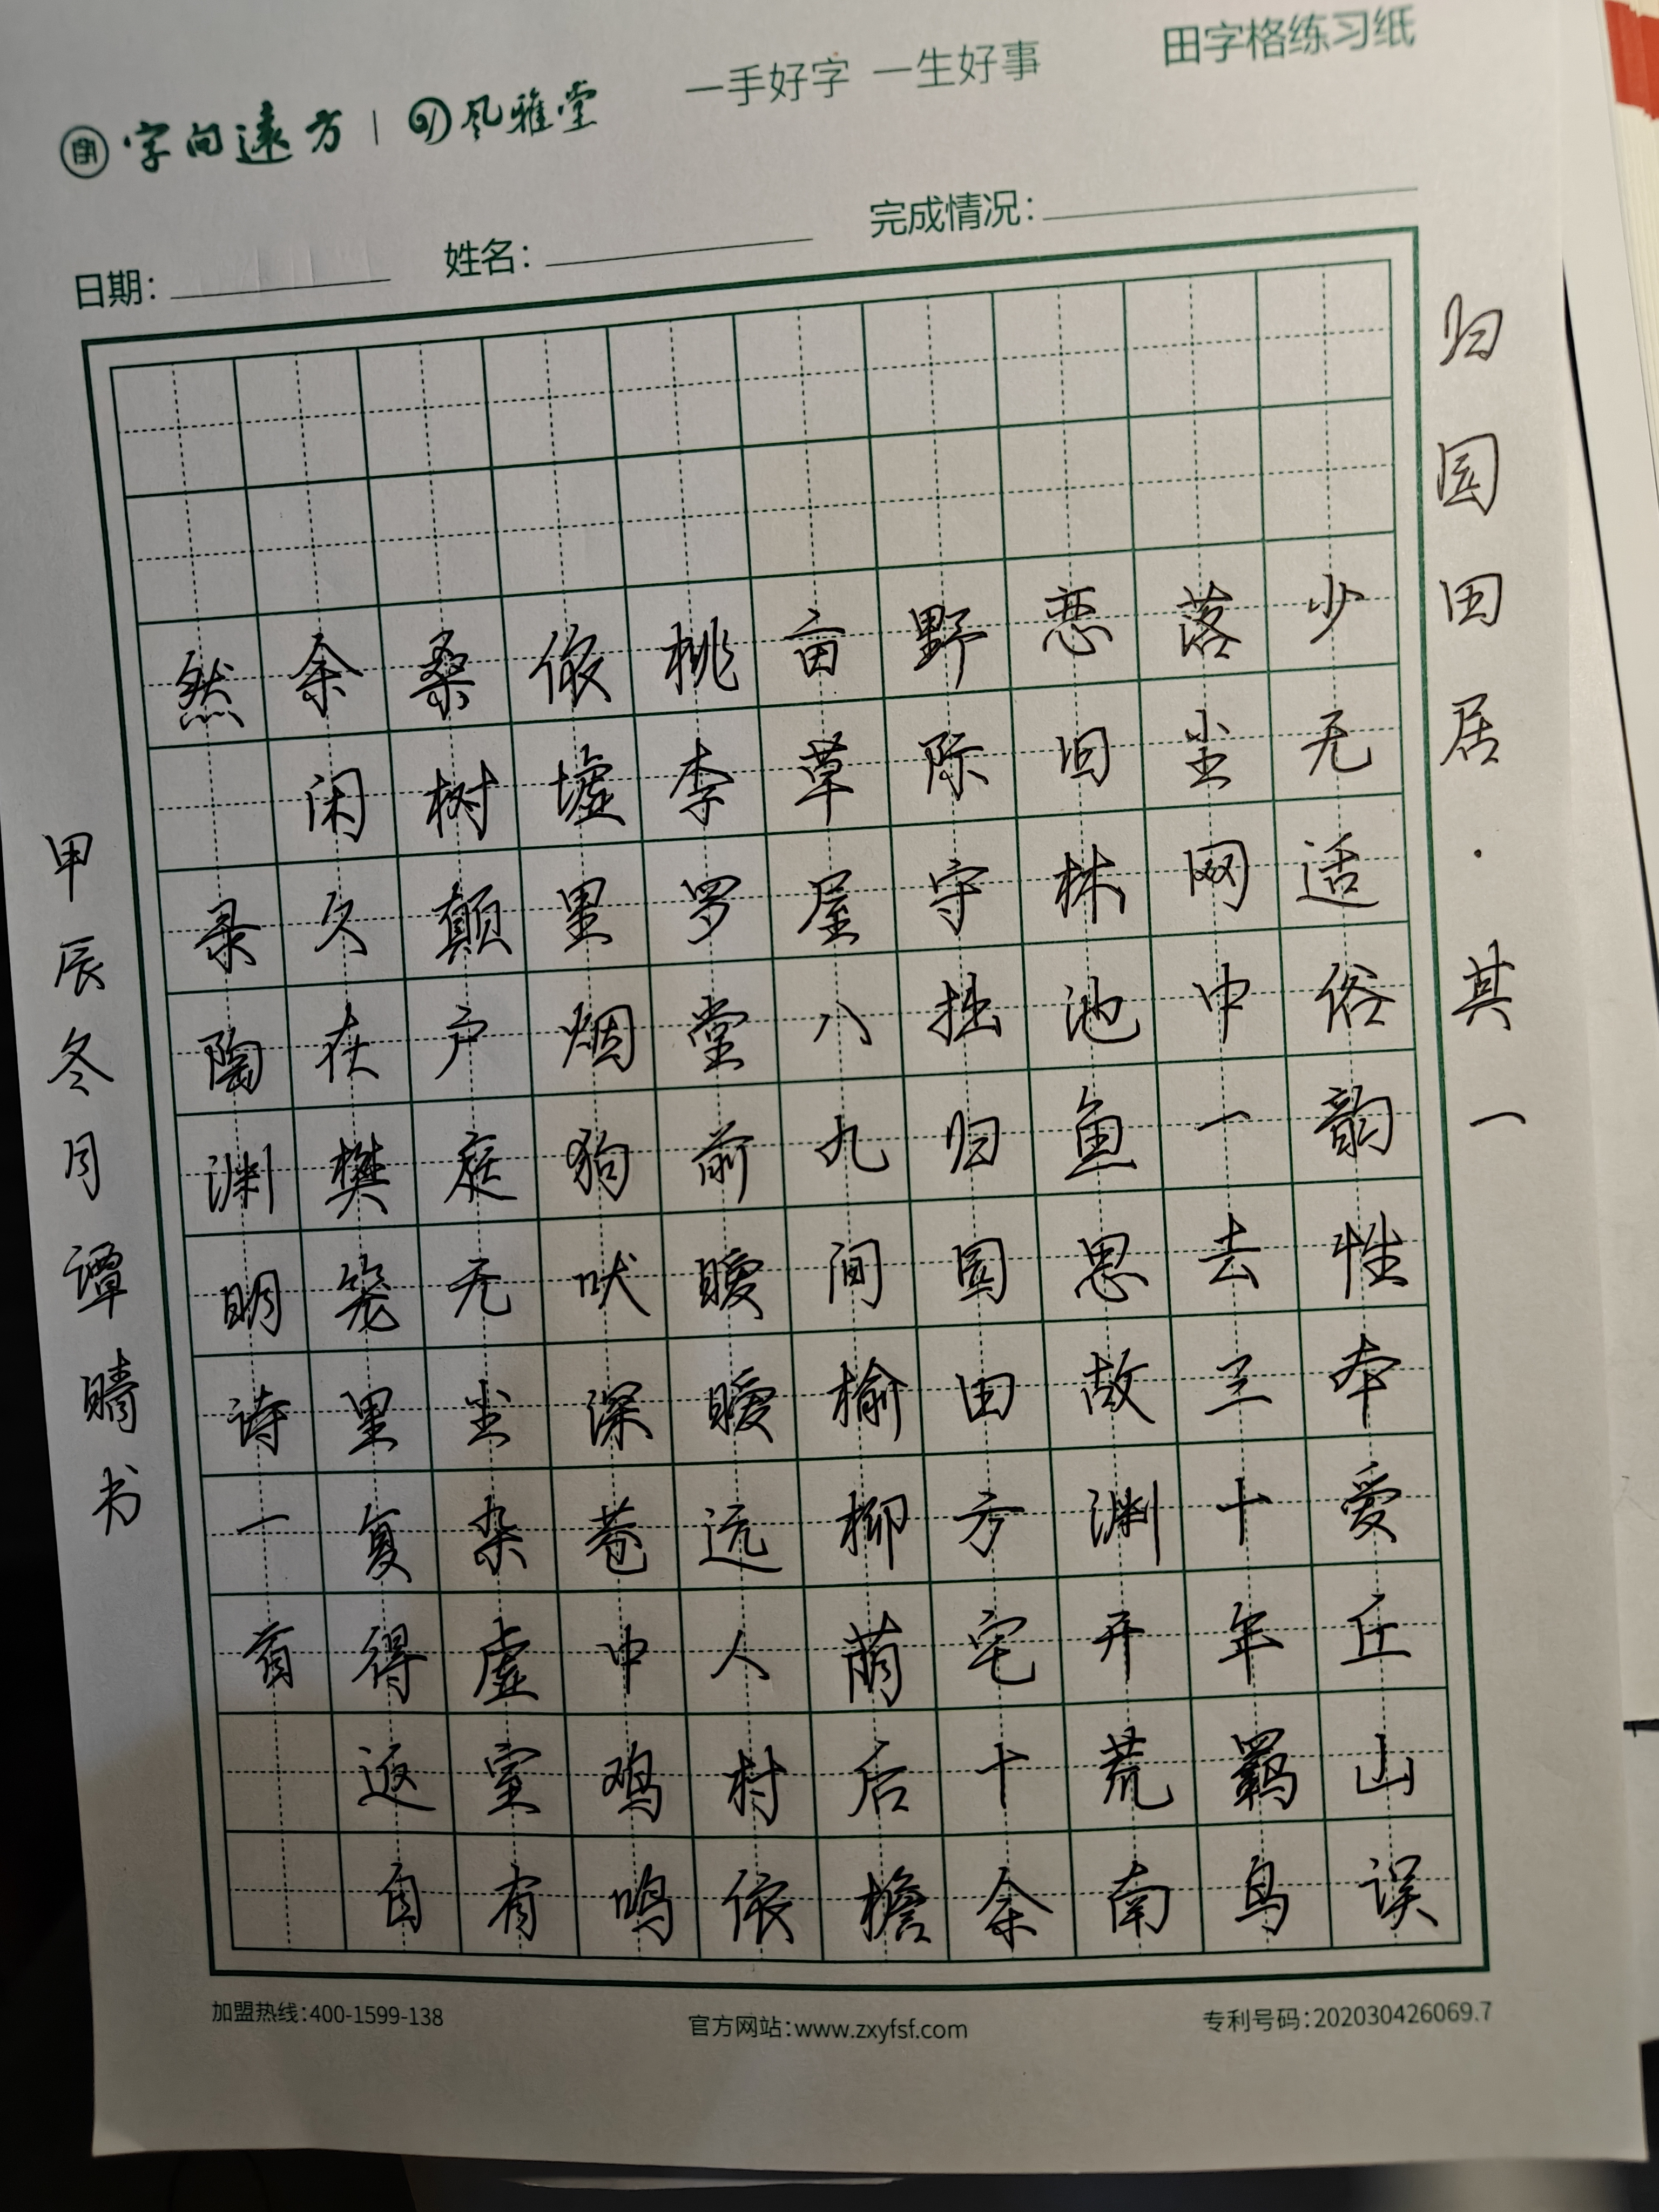 字向远方 | 风雅堂
一手好字 一生好事
田字格练习纸
日期：
姓名：
完成情况：
归园田居·其一
少无适俗韵性本爱丘山误
落尘网中一去三十年羁鸟
恋旧林池鱼思故渊开荒南
野际守拙归园田方宅十余
亩草屋八九间榆柳荫后檐
桃李罗堂前暧暧远人村依
依墟里烟狗吠深巷中鸡鸣
桑树颠户庭无尘杂虚室有
余闲久在樊笼里复得返自
然 录陶渊明诗一首
甲辰冬月谭晴书
加盟热线：400-1599-138
官方网站：www.zxyfsf.com
专利号码：202030426069.7